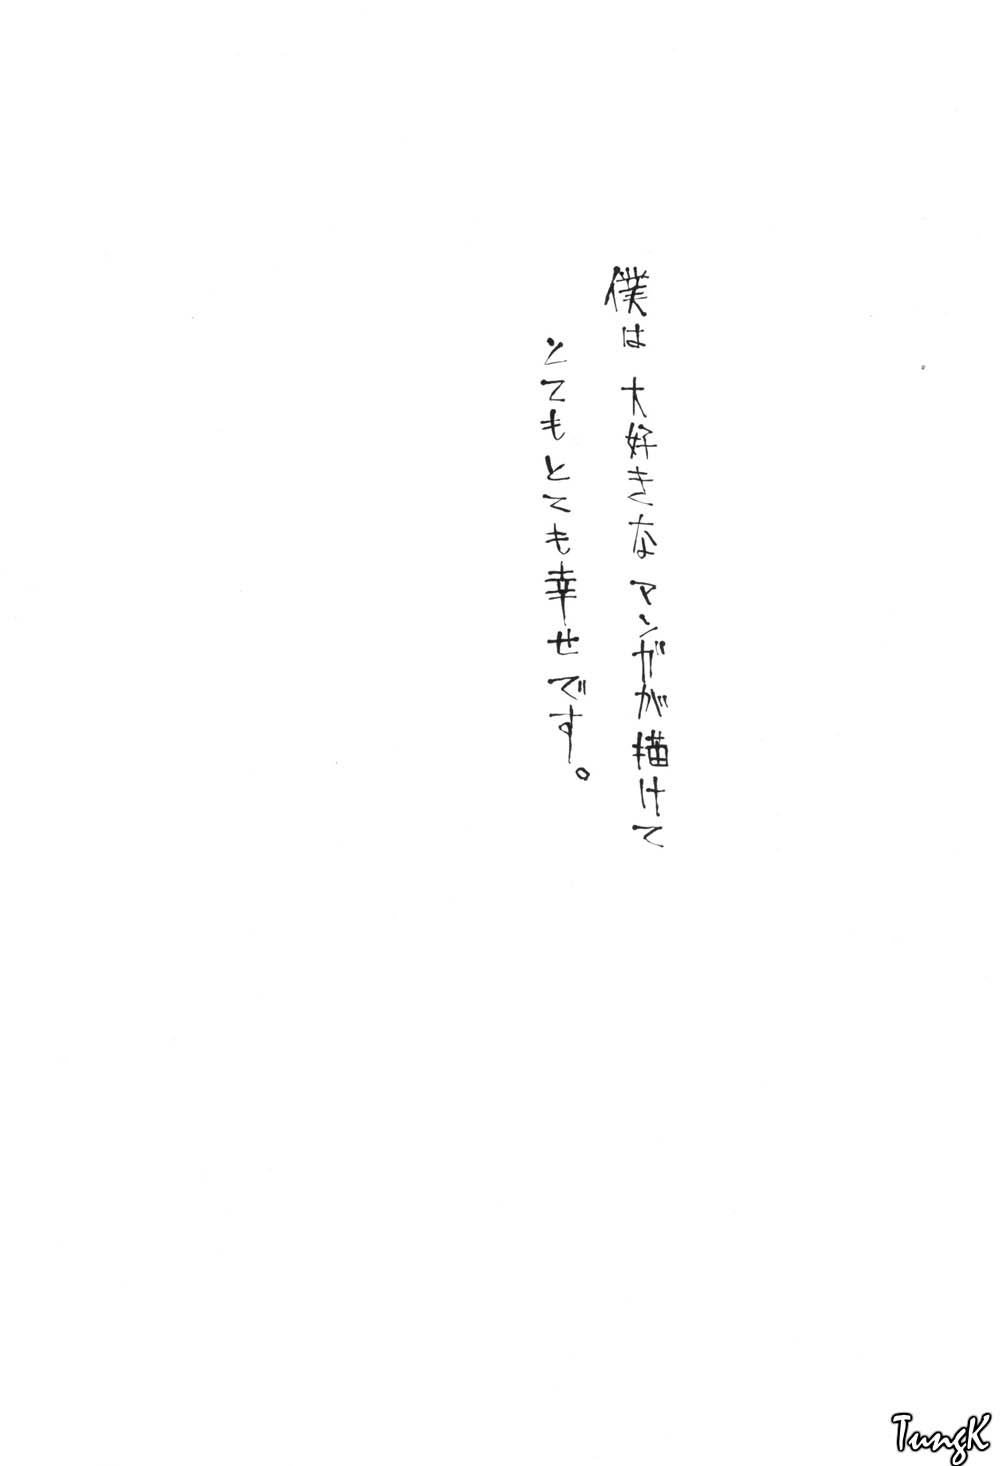 僕は大好きなマンガが描けて
とてもとても幸せです。
TungK